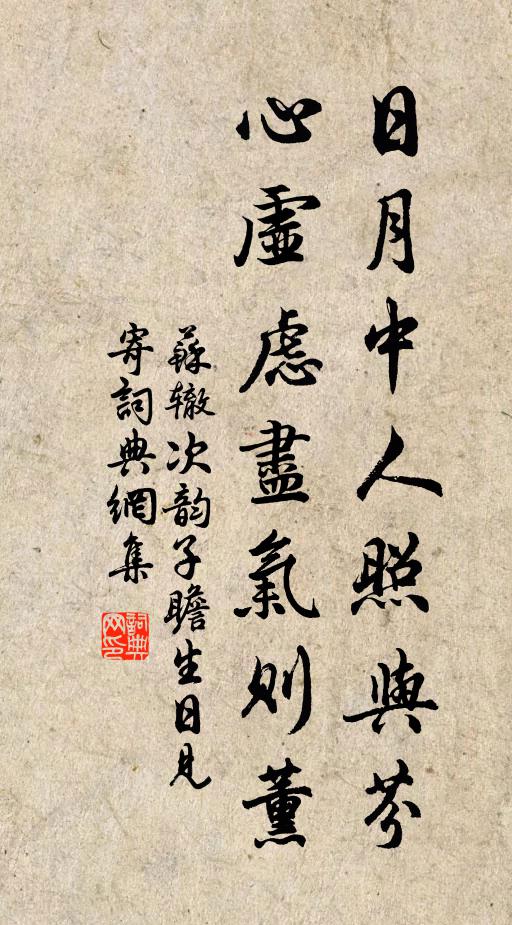 日月中人照與芬
心虛慮盡氣則薰
蘇辙次韵子瞻生日見
寄詞典網集
詞典
网印